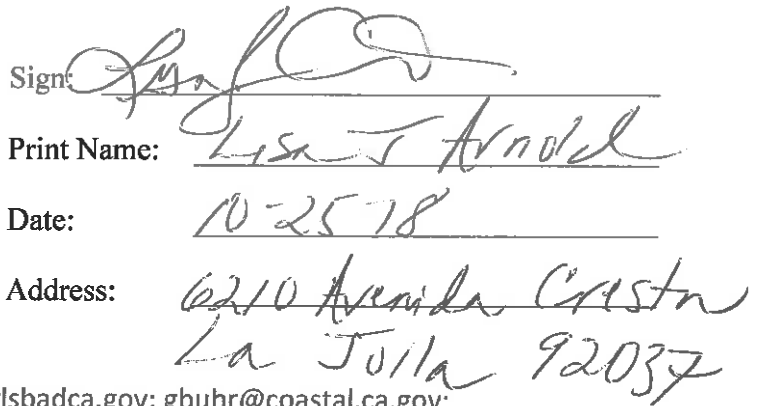 Sign:
Print Name: Lisa J Arnold
Date: 10-25-18
Address: 6210 Avenida Cresta
La Jolla 92037
rlsbadca.gov; gbuhr@coastal.ca.gov;